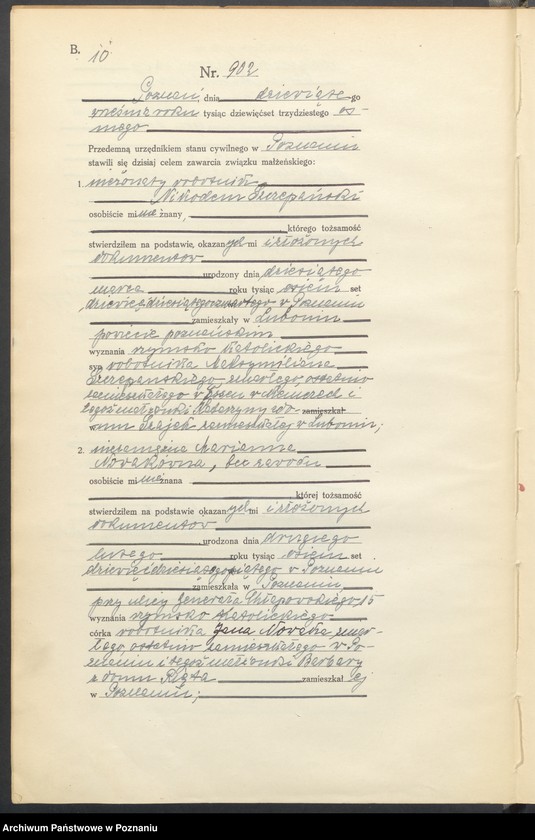 B. 10
Nr. 902
Poznań, dnia dziewiątego
września roku tysiąc dziewięćset trzydziestego ós-
mego
Przedemną urzędnikiem stanu cywilnego w Poznaniu
stawili się dzisiaj celem zawarcia związku małżeńskiego:
1. nieżonaty robotnik
Nikodem Szczepański
osobiście mi nie znany,
którego tożsamość
stwierdziłem na podstawie, okazanych mi i złożonych
dokumentów
urodzony dnia dziesiątego
marca roku tysiąc osiem set
dziewięćdziesiątego czwartego w Poznaniu
zamieszkały w Luboniu
powiecie poznańskim
wyznania rzymsko katolickiego
syn robotnika Maksymiliana
Szczepańskiego, zmarłego, ostatnio
zamieszkałego w Essen w Niemczech i
tegoż małżonki Katarzyny zdo- zamieszkał
w mu Frajek zamieszkałej w Luboniu;
2. niezamężna Marianna
Nowakówna, bez zawodu
osobiście mi nie znana
której tożsamość
stwierdziłem na podstawie okazanych mi i złożonych
dokumentów
urodzona dnia drugiego
lutego roku tysiąc osiem set
dziewięćdziesiątego piątego w Poznaniu
zamieszkała w Poznaniu,
przy ulicy Generała Chłapowskiego 15
wyznania rzymsko katolickiego
córka robotnika Jana Nowaka, zmar-
łego, ostatnio zamieszkałego w Po-
znaniu i tegoż małżonki Barbary
z domu zamieszkałej
w Poznaniu;
Archiwum Państwowe w Poznaniu